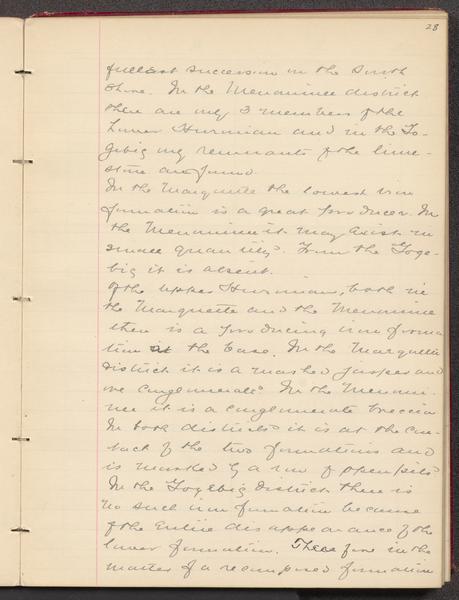 28
fullest succession on the South
Shore. In the Menominee district
there are only 3 members of the
Lower Huronian and in the Go-
gebic only remnants of the lime-
stone are found.
In the Marquette the lowest iron
formation is a great producer. In
the Menominee it may exist in
small quantity. From the Goge-
bic it is absent.
Of the upper Huronian, both in
the Marquette and the Menominee
there is a producing iron forma
tion at the base. In the Marquette
district it is a mashed jasper and
ore conglomerate. In the Menomi-
nee it is a conglomerate breccia
In both districts it is at the con-
tact of the two formations and
is marked by a row of open pits
In the Gogebic district there is
no such iron formation because
of the entire disappearance of the
lower formation. Therefore in the
matter of a recomposed formation